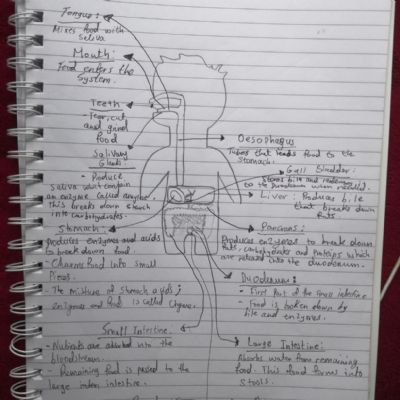 Tongue:
Mixes food with
Saliva
Mouth:
Food enters the
System.
Teeth
- Tear, cut
and grind
food
Salivary
Gland:
- Produce
Saliva which contain
an enzyme called enzyme.
This breaks down starch
into carbohydrates.
Stomach:
produces enzymes and acids
to break down food.
- Churns food into small
Pieces.
- The mixture of stomach acids,
enzymes and food is called Chyme.
Small Intestine:
- Nutrients are absorbed into the
bloodstream.
- Remaining food is passed to the
large intestine.
Oesophagus
Tubes that leads food to the
Stomach.
Gall Bladder:
Stores bile and
to the Duodenum when needed.
Liver: Produces bile
that breaks down
fats.
Pancreas:
Produces enzymes to break down
fats, carbohydrates and proteins which
are released into the duodenum.
Duodenum:
- First Part of the small intestine
- Food is broken down by
bile and enzymes.
Large Intestine:
Absorbs water from remaining
food. This food forms into
Stools.